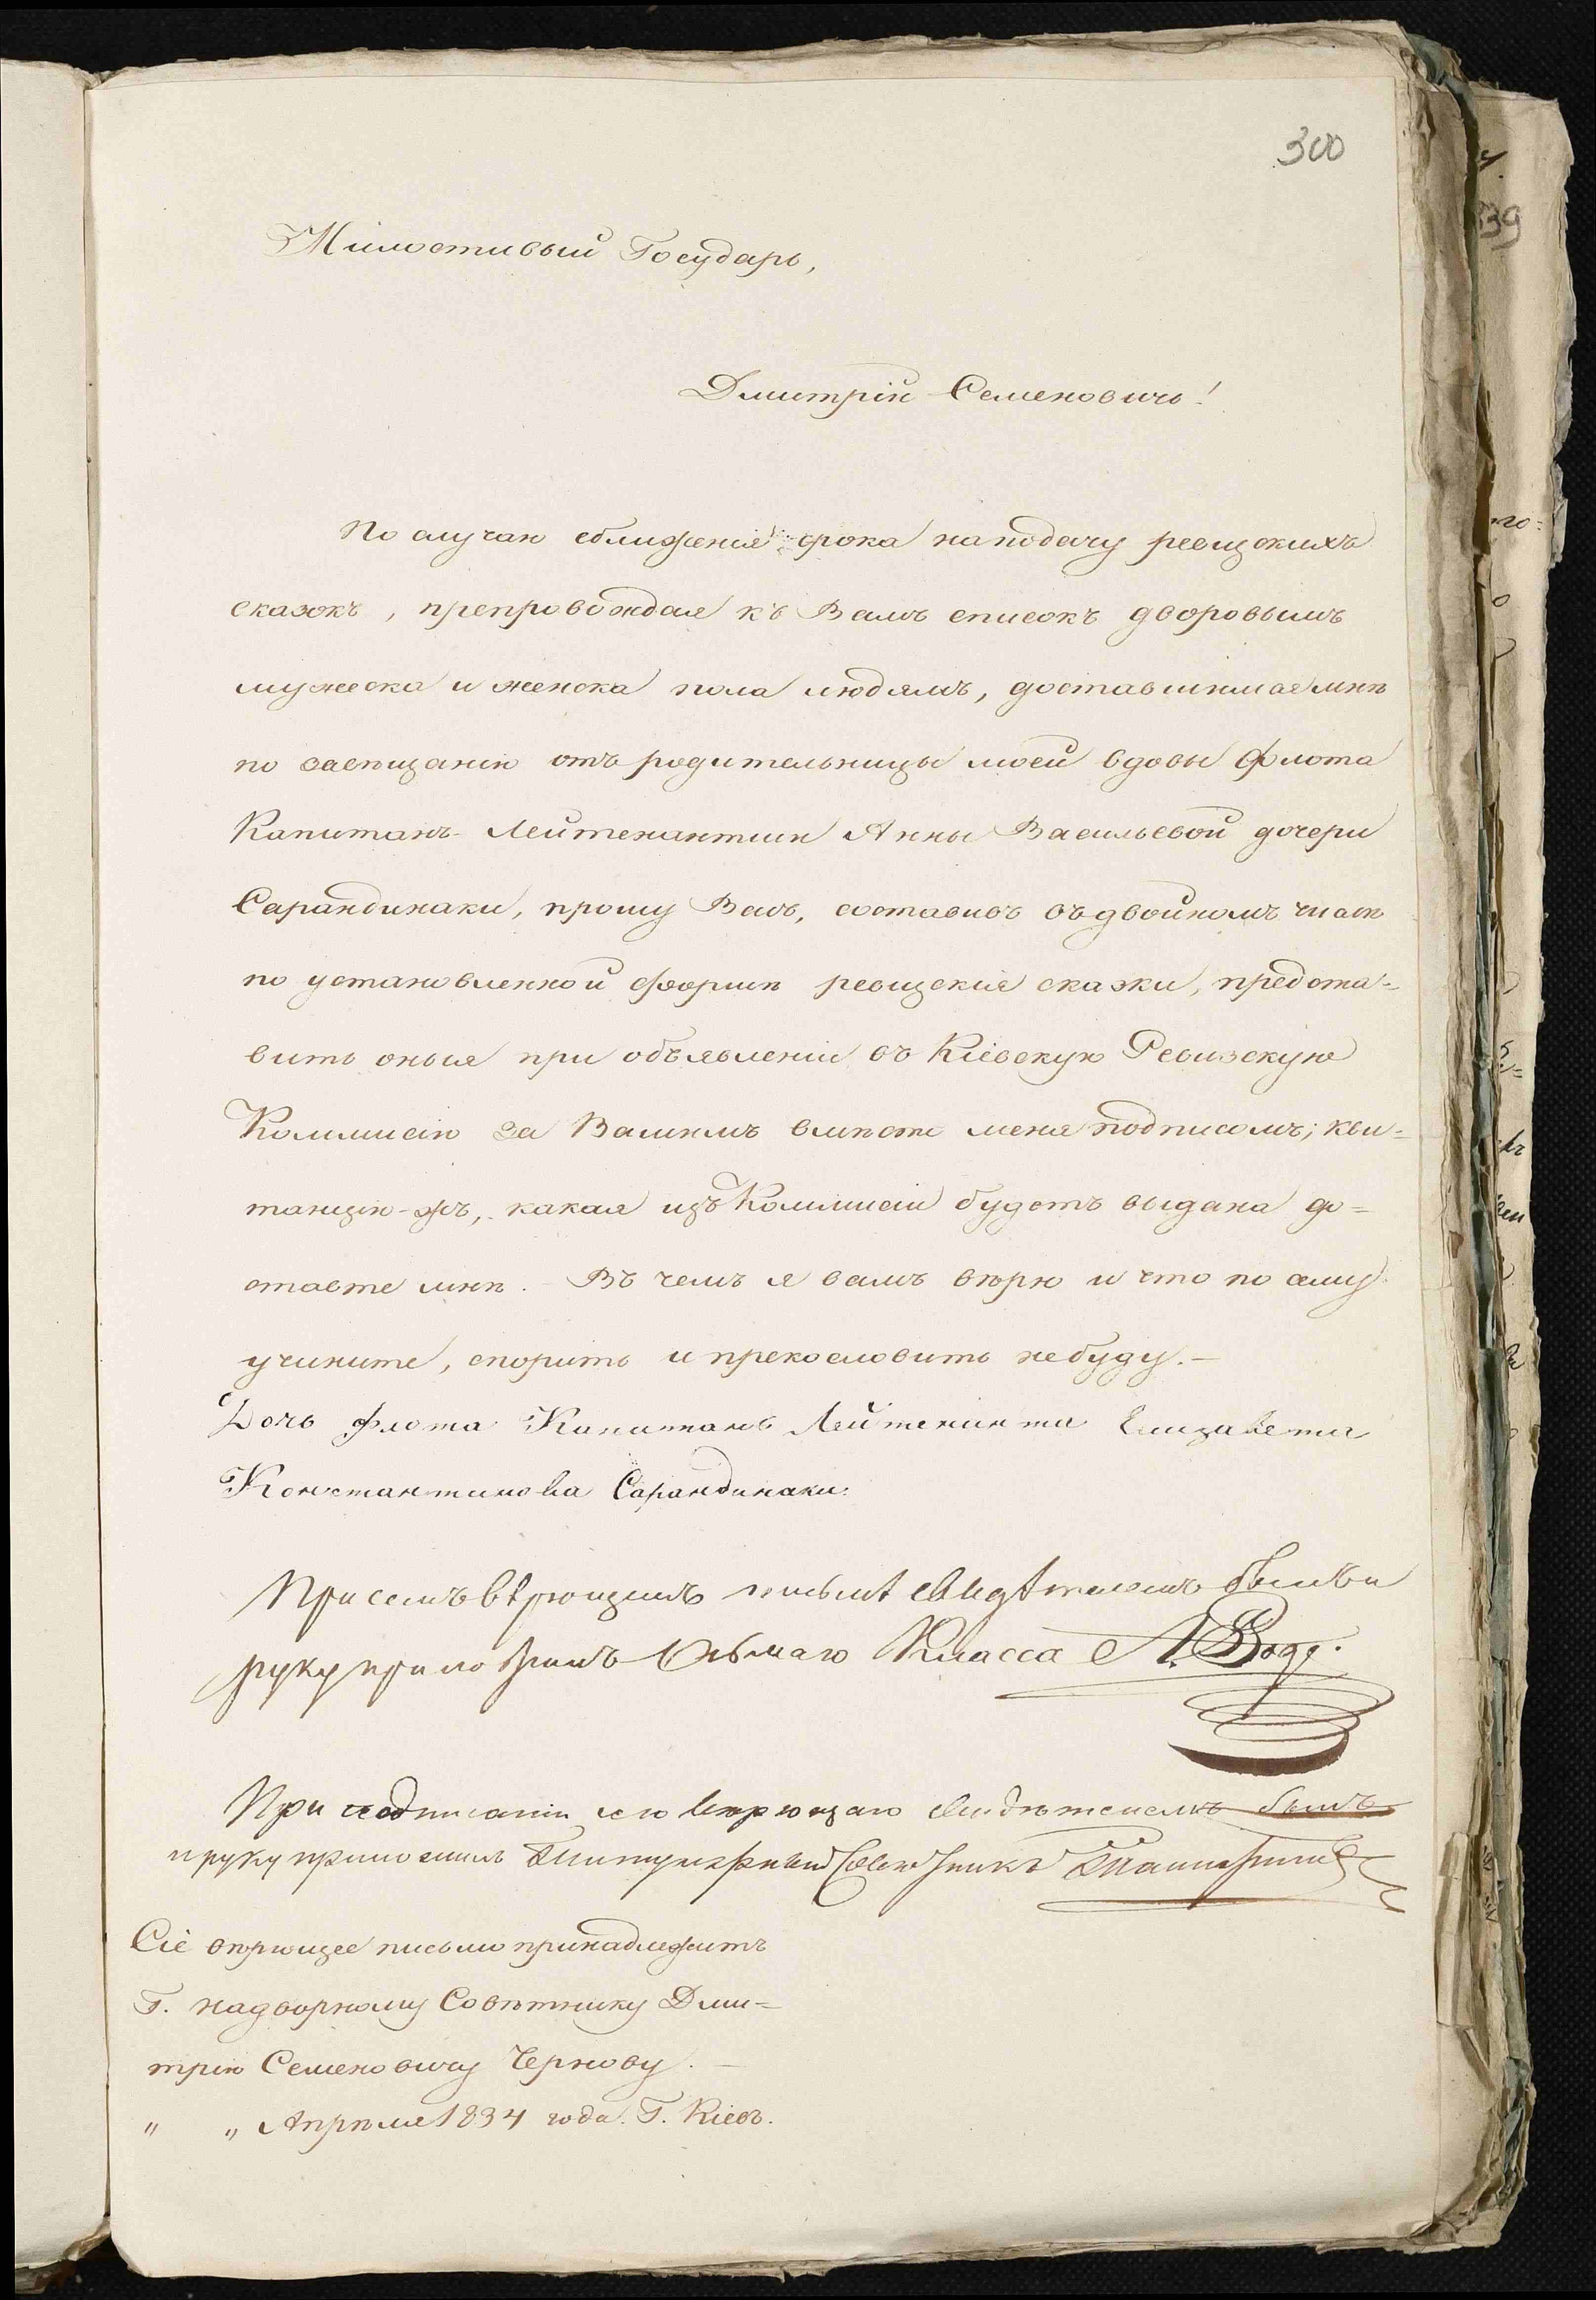 300
Милостивый Государь,
Дмитрій Семеновичь!
По случаю сближенія срока на подачу ревизскихъ
сказокъ, препровождая къ Вамъ списокъ дворовымъ
мужеска и женска пола людямъ, доставшимся мнѣ
по завѣщанію отъ родительницы моей вдовы флота
Капитанъ-Лейтенантши Анны Васильевой дочери
Сарандинаки, прошу Васъ, составивъ въ двойномъ числѣ
по установленной формѣ ревизскія сказки, предста-
вить оныя при объявленіи въ Кіевскую Ревизскую
Коммисію за Вашимъ вмѣсто меня подписомъ; кви-
танцію-жъ, какая изъ Коммисіи будетъ выдана до-
ставте мнѣ. - Въ чемъ я вамъ вѣрю и что по сему
учините, спорить и прекословить не буду.-
Дочь флота Капитанъ Лейтенанта Елизавета
Константинова Сарандинаки.
При семъ вѣрющемъ письмѣ свидѣтелемъ былъ и
руку приложилъ Осьмаго Класса А.
При подписаніи сего вѣрющаго свидѣтелемъ былъ
и руку приложилъ Титулярный Совѣтникъ
Сіе вѣрющее письмо принадлежитъ
Г. надворному Совѣтнику Дми-
трію Семеновичу Чернову. -
" " Апрѣля 1834 года. Г. Кіевъ.